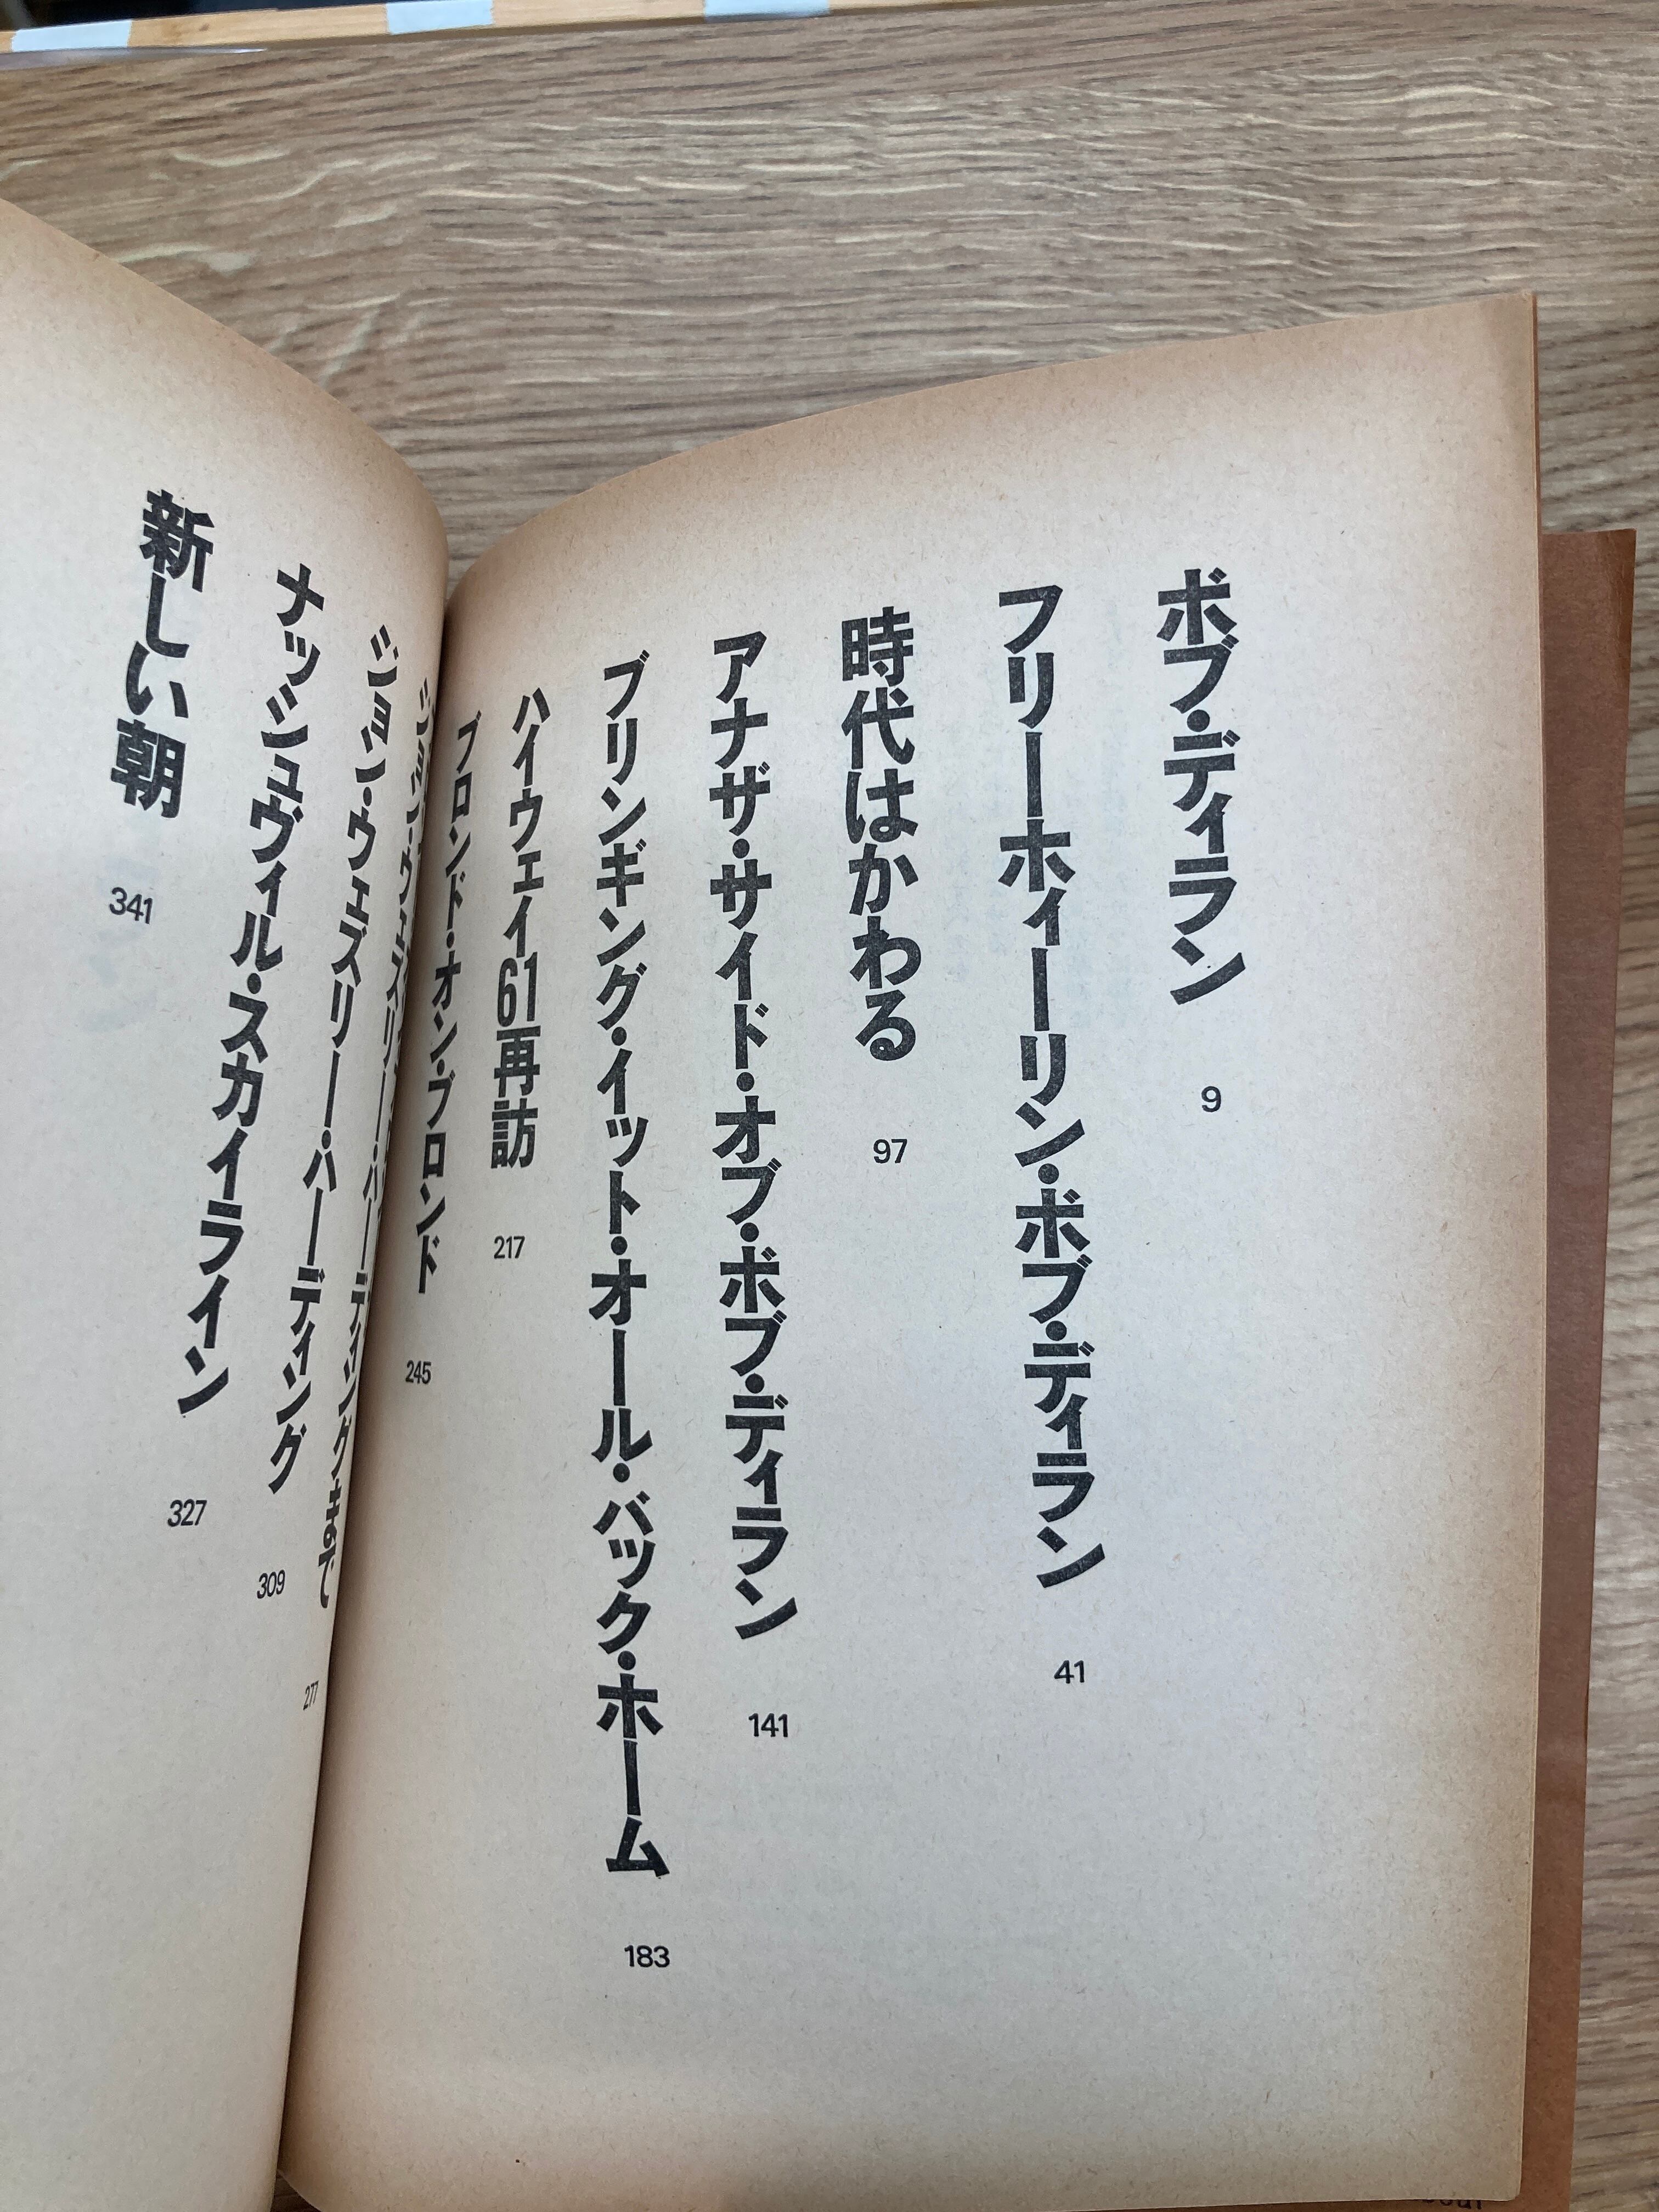 ボブ・ディラン 9
フリーホイーリン・ボブ・ディラン 41
時代はかわる 97
アナザ・サイド・オブ・ボブ・ディラン 141
ブリンギング・イット・オール・バック・ホーム 183
ハイウェイ61再訪 217
ブロンド・オン・ブロンド 245
ジョン・ウェスリー・ハーディングまで 277
ジョン・ウェスリー・ハーディング 309
ナッシュヴィル・スカイライン 327
新しい朝 341